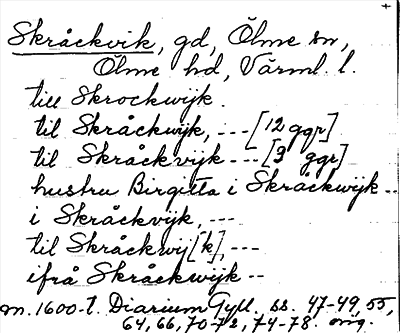 Skråckvik, gd, Ölme sn,
Ölme hd, Värml. l.
till Skrockwijk.
til Skråckwijk, --- [12 ggr]
til Skråckvijk --- [3 ggr]
hustru Birgitta i Skråckwijk --
i Skråckvijk, ---
til Skråckwij[k], ---
ifrå Skråckwijk --
m. 1600-t. Diarium Gyll, ss. 47-49, 55,
64, 66, 70-72, 74-78. orig.